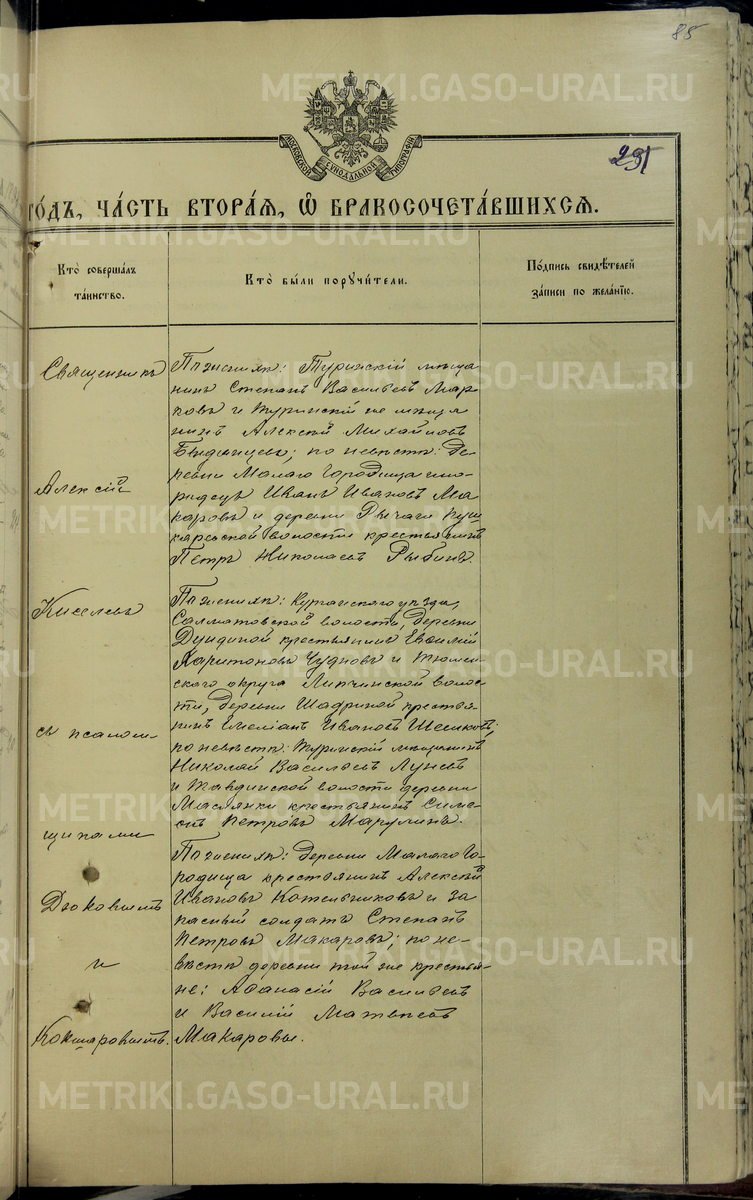 85
METRIKI.GASO-URAL.RU
МОСКОВСКОЙ СѴНОДАЛЬНОЙ ТИПОГРАФІИ
291
ГО́ДЪ, ЧА́СТЬ ВТОРА́Я, Ѡ БРАКОСОЧЕТА́ВШИХСЯ.
Кто̀ соверша́лъ
та́инство.
Кто̀ бы́ли поручи́тели.
По́дпись свидѣ́телей
за́писи по жела́нію.
Священникъ
Алексій
Киселевъ
съ псалом-
щиками
Дьковымъ
и
Кокшаровымъ.
По женихѣ: Туринскій мѣща
нинъ Степанъ Васильевъ Мар
ковъ и туринскій же мѣща
нинъ Алексѣй Михайловъ
по невѣстѣ: де-
ревни Малаго Городища ино-
родецъ Иванъ Ивановъ Ма
каровъ и деревни Рычаги Куш
каревской волости крестьянинъ
Петръ Николаевъ Рыбинъ.
По женихѣ: Курганскаго уѣзда,
Салматовской волости, деревни
Дундиной крестьянинъ Евсимій
Харитоновъ Чудновъ и Тюмен-
скаго округа Липчинской волос-
ти, деревни Шадриной крестья-
нинъ Емеліанъ Ивановъ Шешковъ;
по невѣстѣ: туринскій мѣщанинъ
Николай Васильевъ Луневъ
и Тавдинской волости деревни
Маслянки крестьянинъ Симе-
онъ Петровъ Марулинъ.
По женихѣ: деревни Малаго Го-
родища крестьянинъ Алексѣй
Ивановъ Котельниковъ и за
пасный солдатъ Степанъ
Петровъ Макаровъ; по не-
вѣстѣ деревни той же крестья-
не: Афанасій Васильевъ
и Василій Матвѣевъ
Макаровы.